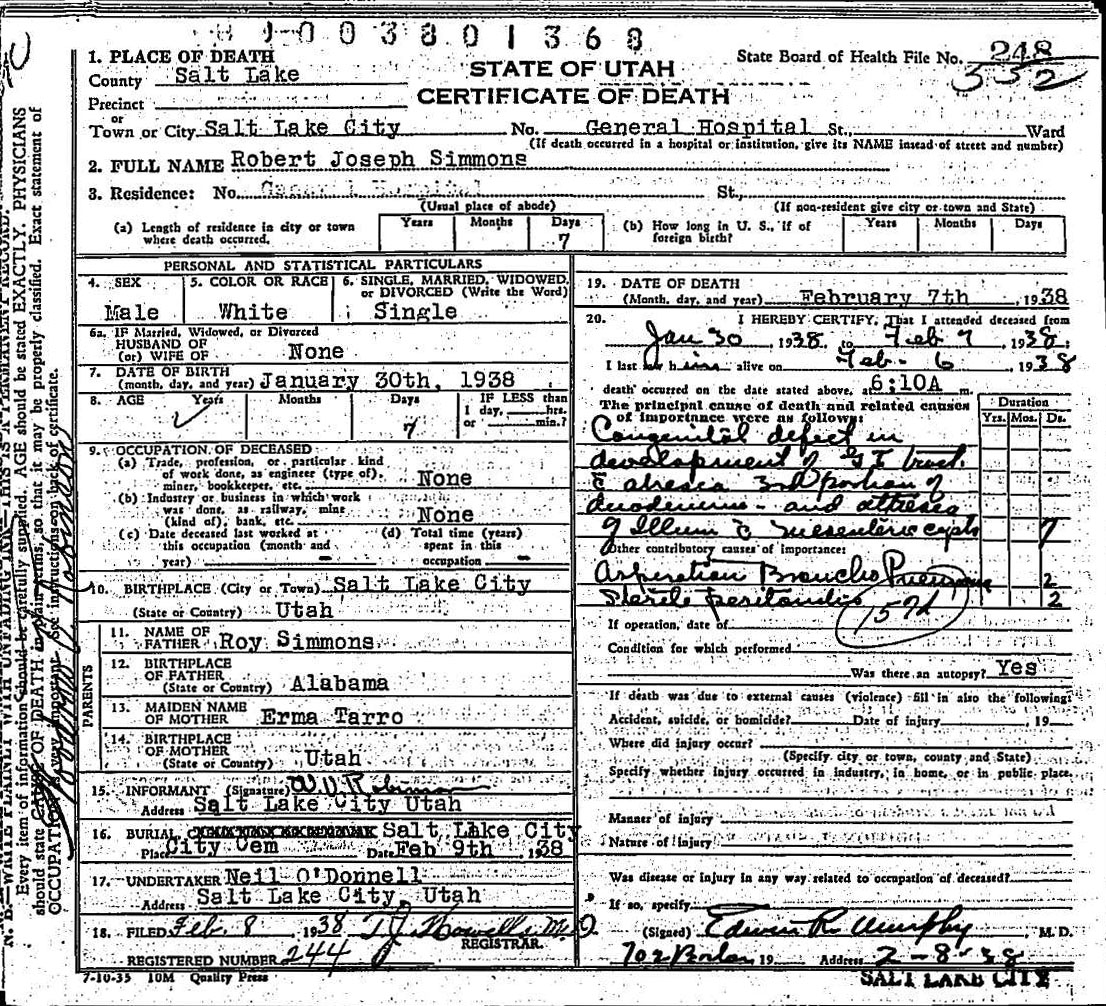 003801368
1. PLACE OF DEATH
County Salt Lake
STATE OF UTAH
CERTIFICATE OF DEATH
State Board of Health File No. 248
352
Precinct
or
Town or City Salt Lake City No. General Hospital St., Ward
(If death occurred in a hospital or institution, give its NAME instead of street and number)
2. FULL NAME Robert Joseph Simmons
3. Residence: No. General Hospital St,
(Usual place of abode) (If non-resident give city or town and State)
(a) Length of residence in city or town where death occurred. Years Months Days 7
(b) How long in U. S., if of foreign birth? Years Months Days
PERSONAL AND STATISTICAL PARTICULARS
4. SEX Male
5. COLOR OR RACE White
6. SINGLE, MARRIED, WIDOWED, or DIVORCED (Write the Word) Single
6a. IF Married, Widowed, or Divorced
HUSBAND OF
(or) WIFE OF None
7. DATE OF BIRTH
(month, day, and year) January 30th, 1938
8. AGE Years Months Days 7
IF LESS than 1 day, hrs. or min.?
9. OCCUPATION OF DECEASED
(a) Trade, profession, or particular kind
of work done, as engineer (type of),
miner, bookkeeper, etc. None
(b) Industry or business in which work
was done, as railway, mine
(kind of), bank, etc. None
(c) Date deceased last worked at
this occupation (month and
year) -
(d) Total time (years)
spent in this
occupation -
10. BIRTHPLACE (City or Town) Salt Lake City
(State or Country) Utah
PARENTS
11. NAME OF
FATHER Roy Simmons
12. BIRTHPLACE
OF FATHER
(State or Country) Alabama
13. MAIDEN NAME
OF MOTHER Erma Tarro
14. BIRTHPLACE
OF MOTHER
(State or Country) Utah
15. INFORMANT (Signature) W. V. Robinson
Address Salt Lake City Utah
16. BURIAL Salt Lake City
Place City Cem Date Feb 9th, 1938
17. UNDERTAKER Neil O'Donnell
Address Salt Lake City, Utah
18. FILED Feb. 8 1938 T J Howells M.D.
REGISTRAR.
REGISTERED NUMBER 244
7-10-35 10M Quality Press
19. DATE OF DEATH
(Month, day, and year) February 7th, 1938
20. I HEREBY CERTIFY, That I attended deceased from
Jan 30, 1938, to Feb 7, 1938;
I last saw him alive on Feb - 6, 1938
death occurred on the date stated above, at 6:10A m.
The principal cause of death and related causes
of importance were as follows:
Duration
Yrs. Mos. Ds.
Congenital defect in
development of G I tract.
c atresia 3rd portion of
duodenum - and attresia
of Illium c mesenteric cysts 7
Other contributory causes of importance:
Aspiration Broncho Pneumonia 2
Sterile peritonitis 2
157d
If operation, date of
Condition for which performed
Was there an autopsy? Yes
If death was due to external causes (violence) fill in also the following:
Accident, suicide, or homicide? Date of injury , 19
Where did injury occur?
(Specify city or town, county and State)
Specify whether injury occurred in industry, in home, or in public place.
Manner of injury
Nature of injury
Was disease or injury in any way related to occupation of deceased?
If so, specify
(Signed) Edwin R. Murphy M. D.
19 Address 2-8-38
SALT LAKE CITY
Every item of information should be carefully supplied. AGE should be stated EXACTLY. PHYSICIANS
should state CAUSE OF DEATH in plain terms, so that it may be properly classified. Exact statement of
OCCUPATION is very important. See instructions on back of certificate.